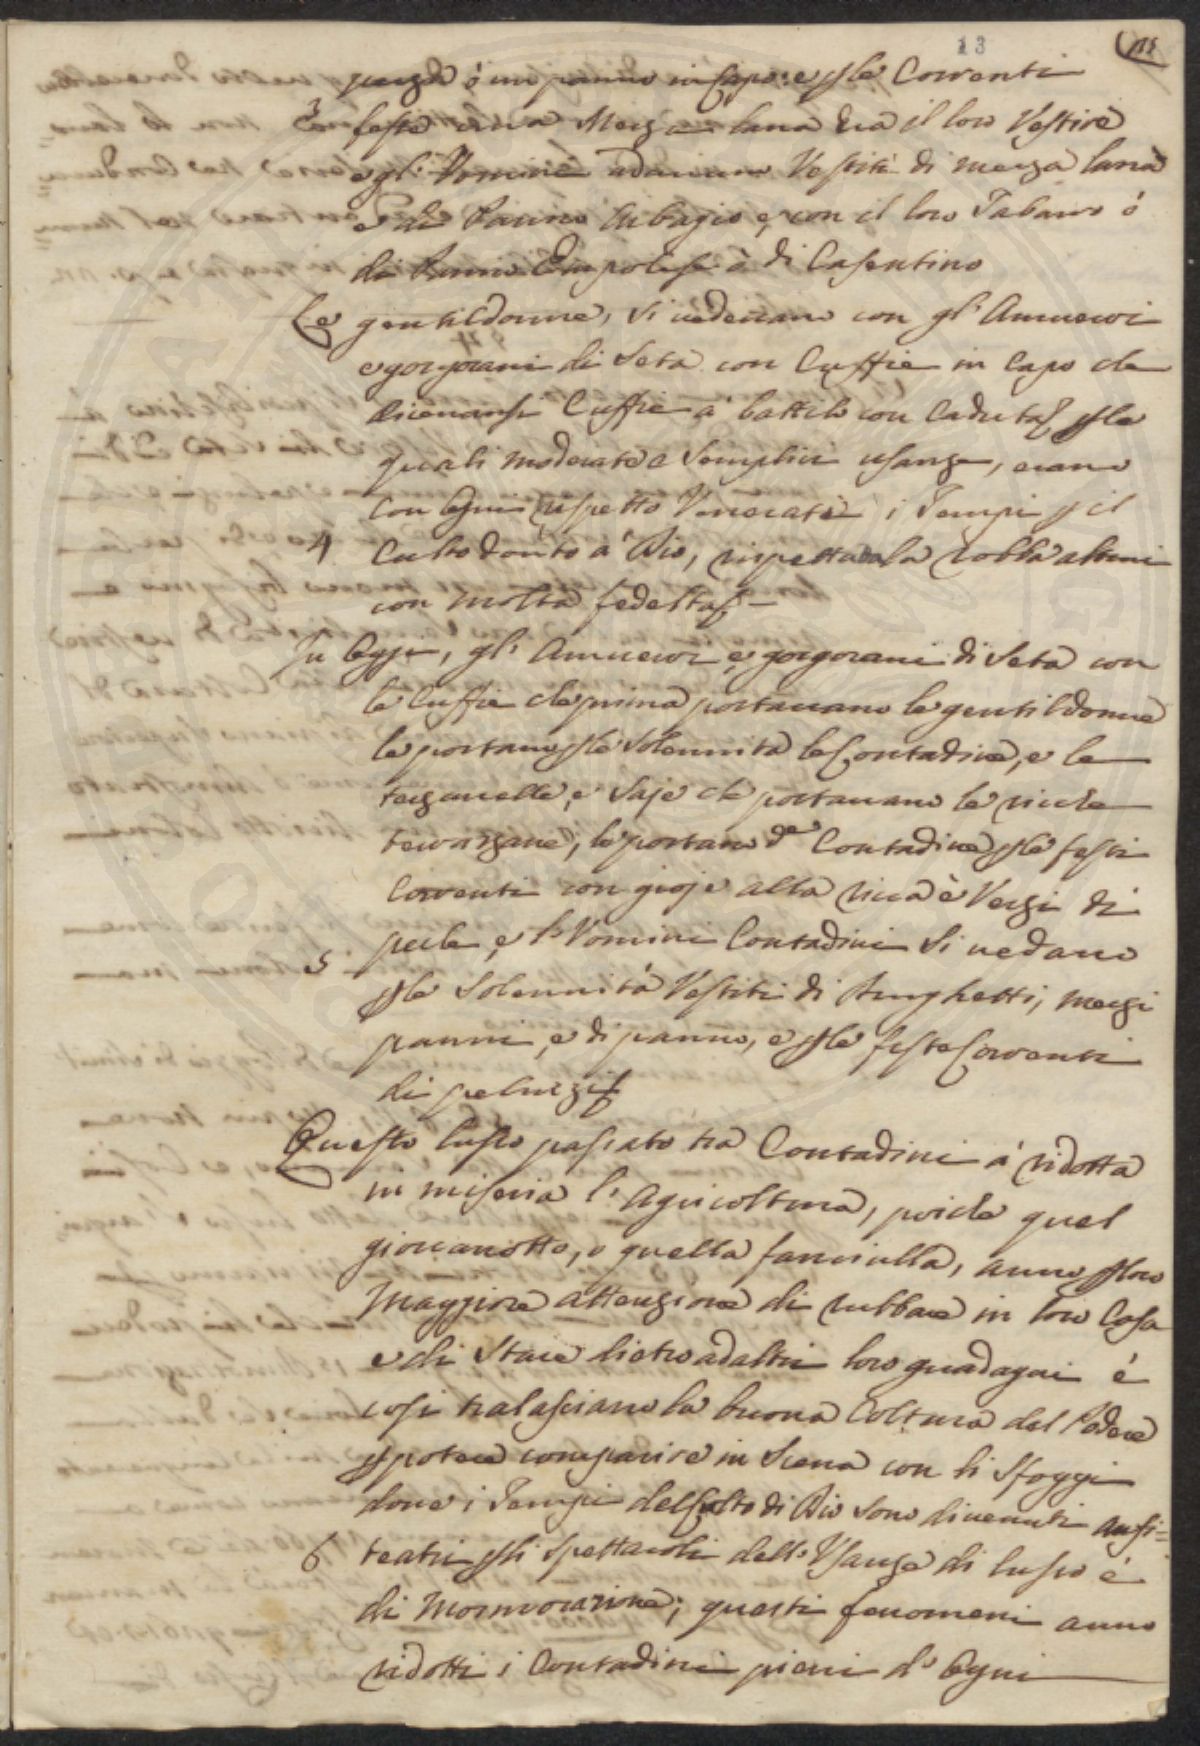 13
pezza ò un panno in Capo: e p le Correnti
3 feste una Mezza lana era il loro Vestire
e gl'Uomini andavano Vestiti di mezza lana
e di Panno lubagio e, con il loro Tabarro ò
di Panno Empolese ò di Casentino
Le gentildonne, si vedevano con gl'Amuerri
e gorgorani di Seta con Cuffie in Capo che
dicevansi Cuffie a' battilo con Caduta, p le
quali moderate e Semplici usanze, erano
con Ogni rispetto Venerati i Tempi p il
4 Culto dovuto a' Dio, rispettata la robba altrui
con molta fedeltà
In Oggi, gl'Amuerri e, gorgorani di Seta con
le Cuffie che prima portavano le gentildonne
le portano p le Solennità le Contadine, e le
terzanelle, e Saje che portavano le ricche
terrazzane, le portano de Contadine p le feste
Correnti con gioje alla ricca è Vezzi di
5 perle, e l'Uomini Contadini Si vedano
p le Solennità Vestiti di Anghetti, mezzi
panni, e di panno, e p le feste Correnti
di peluzzi
Questo lusso passato tra Contadini à ridotta
in miseria l'Agricoltura, poiche quel
giovanotto, o quella fanciulla, anno p loro
Maggiore attenzione di rubbare in loro Casa
e di Stare dietro ad altri loro guadagni è
cosi tralasciano la buona Coltura del Podere
p potere comparire in Scena con li Sfoggi
dove i Tempi del Culto di Dio Sono divenuti anfi=
6 teatri p li Spettacoli dell'Usanze di lusso è
di Mormorazione; questi fenomeni anno
ridotti i Contadini pieni d'Ogni